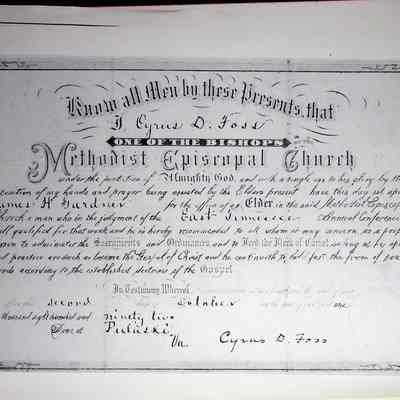 Know all Men by these Presents, that
I Cyrus D. Foss
ONE OF THE BISHOPS of the
Methodist Episcopal Church
under the protection of Almighty God, and with a single eye to his glory by the
my hands and prayer being assisted by the Elders present have this day set apa
ames H. Gardner for the office of an Elder in the said Methodist Episcop
hurch a man who in the judgment of the East Tennessee Annual Conference
well qualified for that work and he is hereby recommended to all whom it may concern as a prop
erson to administer the Sacraments and Ordinances and to feed the Flock of Christ so long as
practice are such as become the Gospel of Christ and he continueth to hold fast the form of
ords according to the established doctrines of the Gospel.
In Testimony Whereof
second day of October one
thousand eight hundred and ninety two
Done at Pulaski Va. Cyrus D. Foss